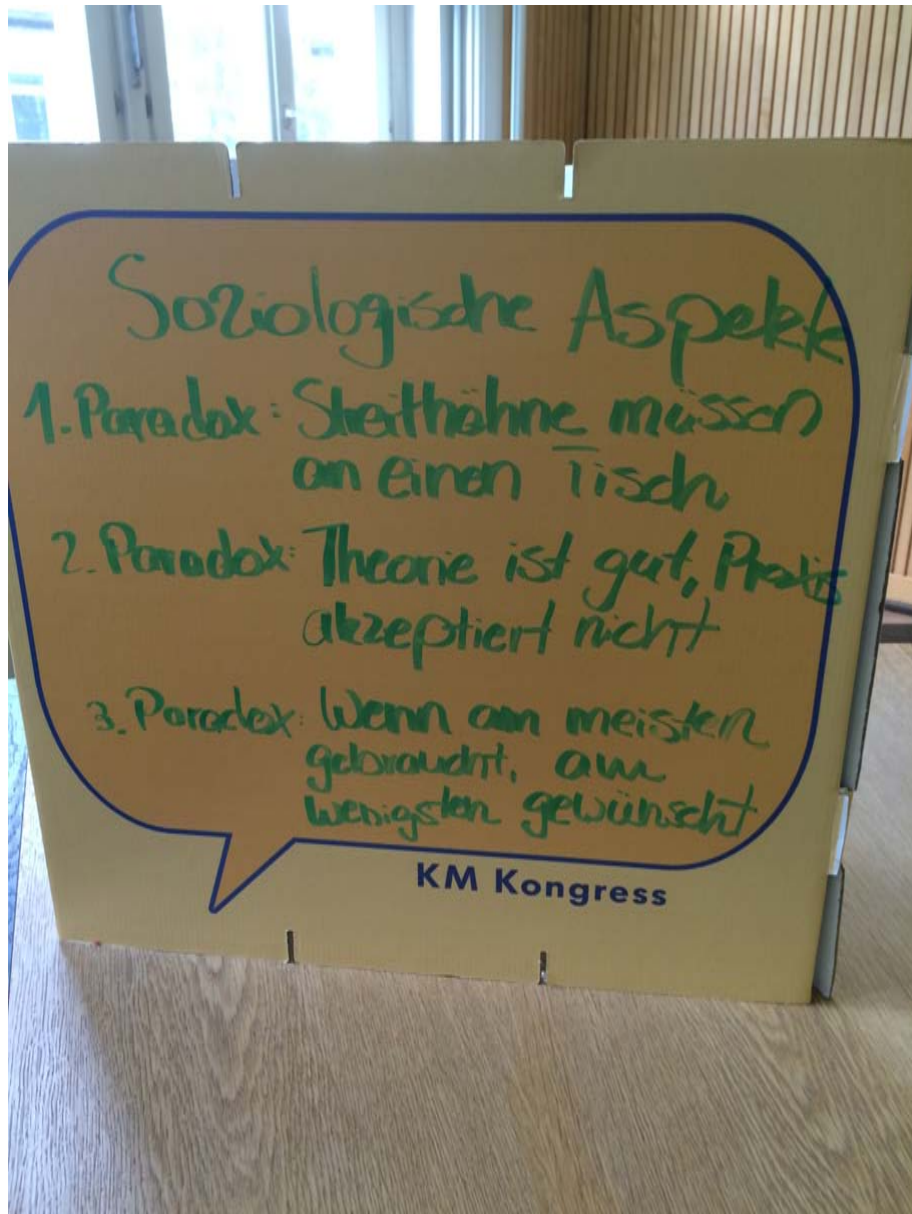 Soziologische Aspekte
1. Paradox: Streithähne müssen
an einen Tisch
2. Paradox: Theorie ist gut, Praxis
akzeptiert nicht
3. Paradox: Wenn am meisten
gebraucht, am
wenigsten gewünscht
KM Kongress